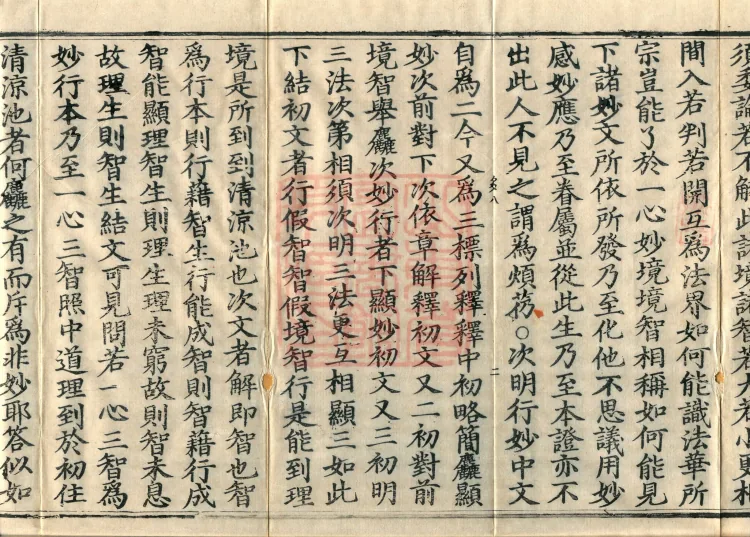 須委論若不解此諸境諸智若心更相
間入若判若開互爲法界如何能識法華所
宗豈能了於一心妙境境智相稱如何能見
下諸妙文所依所發乃至化他不思議用妙
感妙應乃至眷屬並從此生乃至本證亦不
出此人不見之謂爲煩芿○次明行妙中文
自爲二今又爲三標列釋釋中初略簡麤顯
妙次前對下次依章解釋初文又二初對前
境智舉麤次妙行者下顯妙初文又三初明
三法次第相須次明三法更互相顯三如此
下結初文者行假智智假境智行是能到理
境是所到到清涼池也次文者解即智也智
爲行本則行藉智生行能成智則智藉行成
智能顯理智生則理生理未窮故則智未息
故理生則智生結文可見問若一心三智爲
妙行本乃至一心三智照中道理到於初住
清涼池者何麤之有而斥爲非妙耶答似如